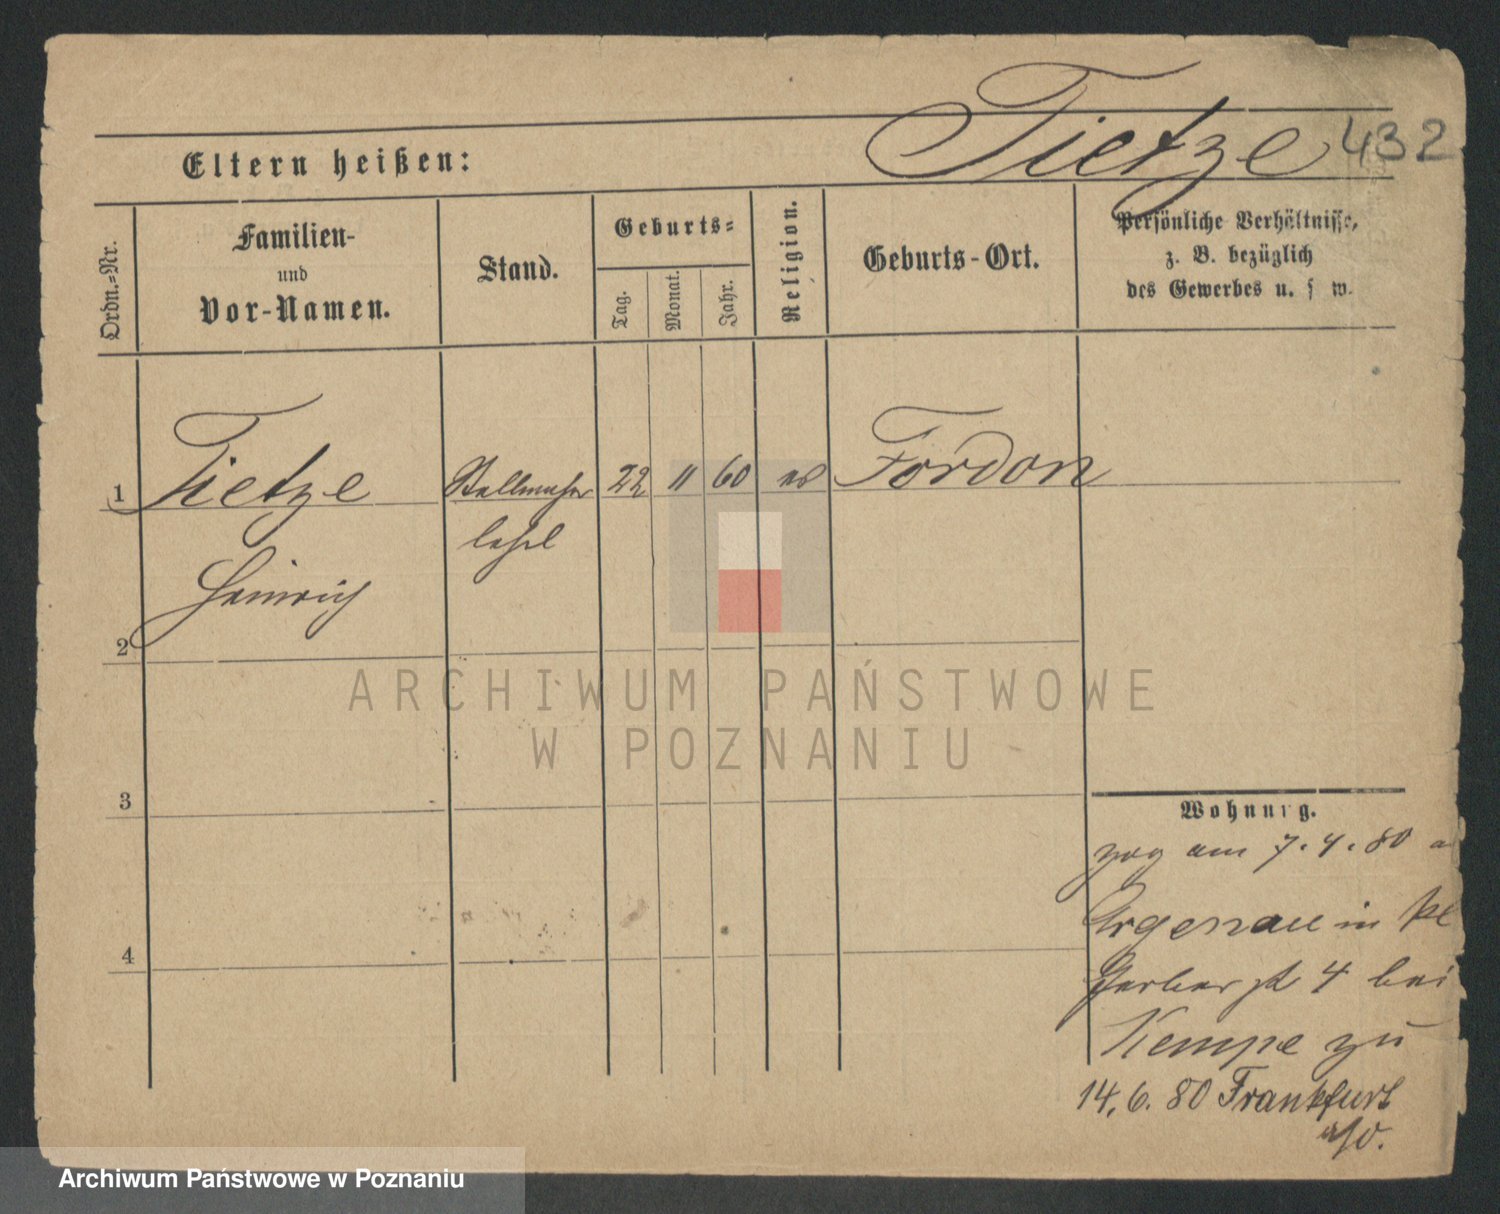 Tietze 432
Eltern heißen:
Ordn.-Nr.
Familien-
und
Vor-Namen.
Stand.
Geburts-
Tag.
Monat.
Jahr.
Religion.
Geburts-Ort.
Persönliche Verhältnisse,
z. B. bezüglich
des Gewerbes u. s w.
1 Tietze Stellmacher 22 11 60 ev Fordon
Heinrich
2
3
4
Wohnung.
zog am 7. 4. 80 a
Argenau in kl
Gerber st 4 bei
Kempe zu
14. 6. 80 Frankfurt
a/O.
ARCHIWUM PAŃSTWOWE
W POZNANIU
Archiwum Państwowe w Poznaniu